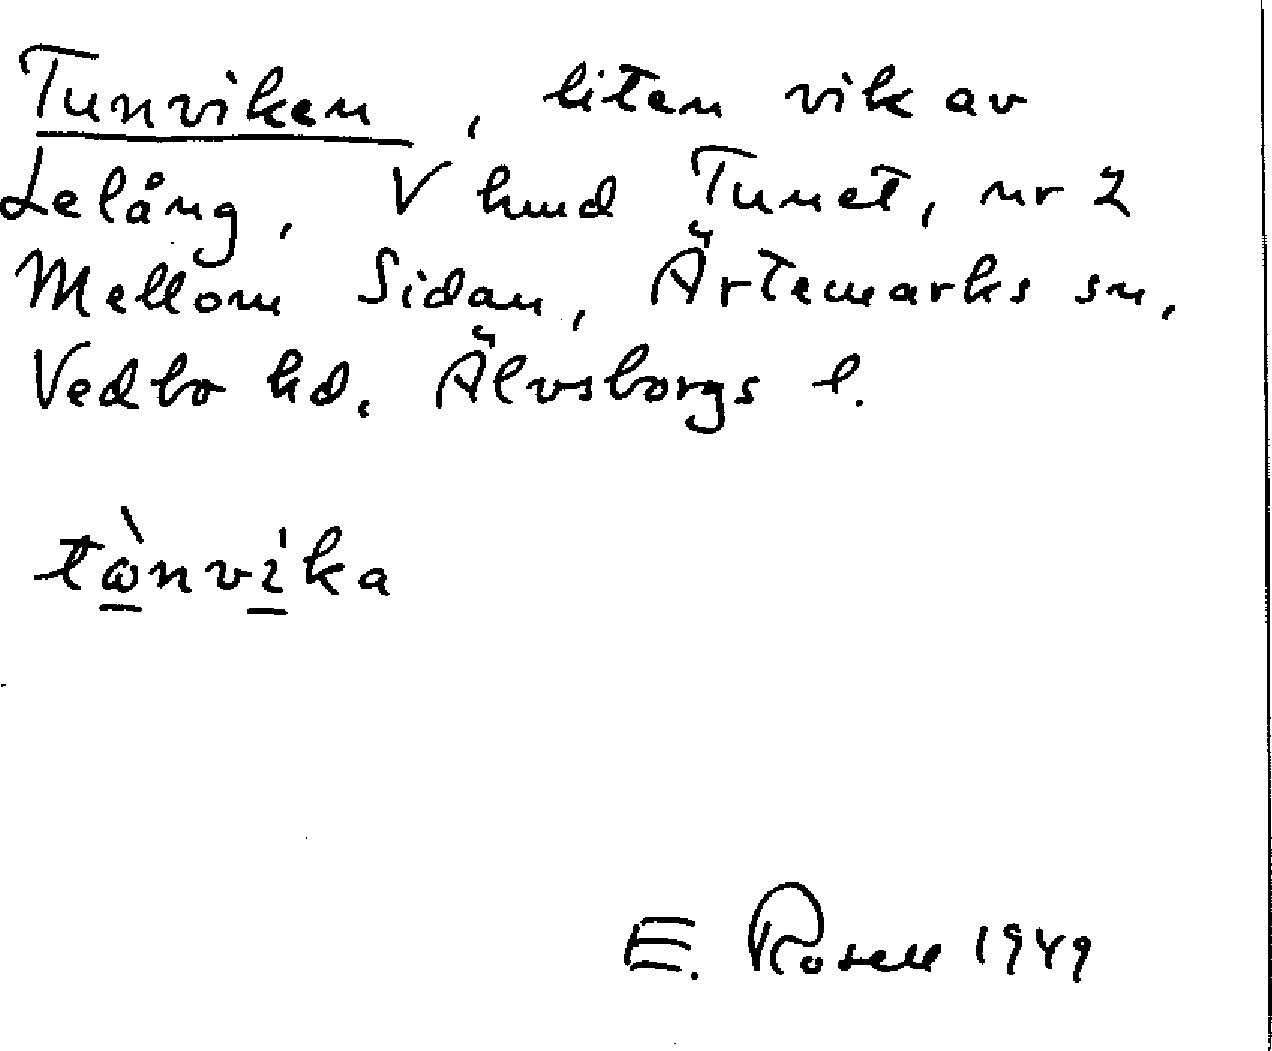 Tunviken, liten vik av
Lelång, V hmd Tunet, nr 2
Mellom Sidan, Ärtemarks sn,
Vedbo hd. Älvsborgs l.
tὼnvi̲ka
E. Rosell 1949